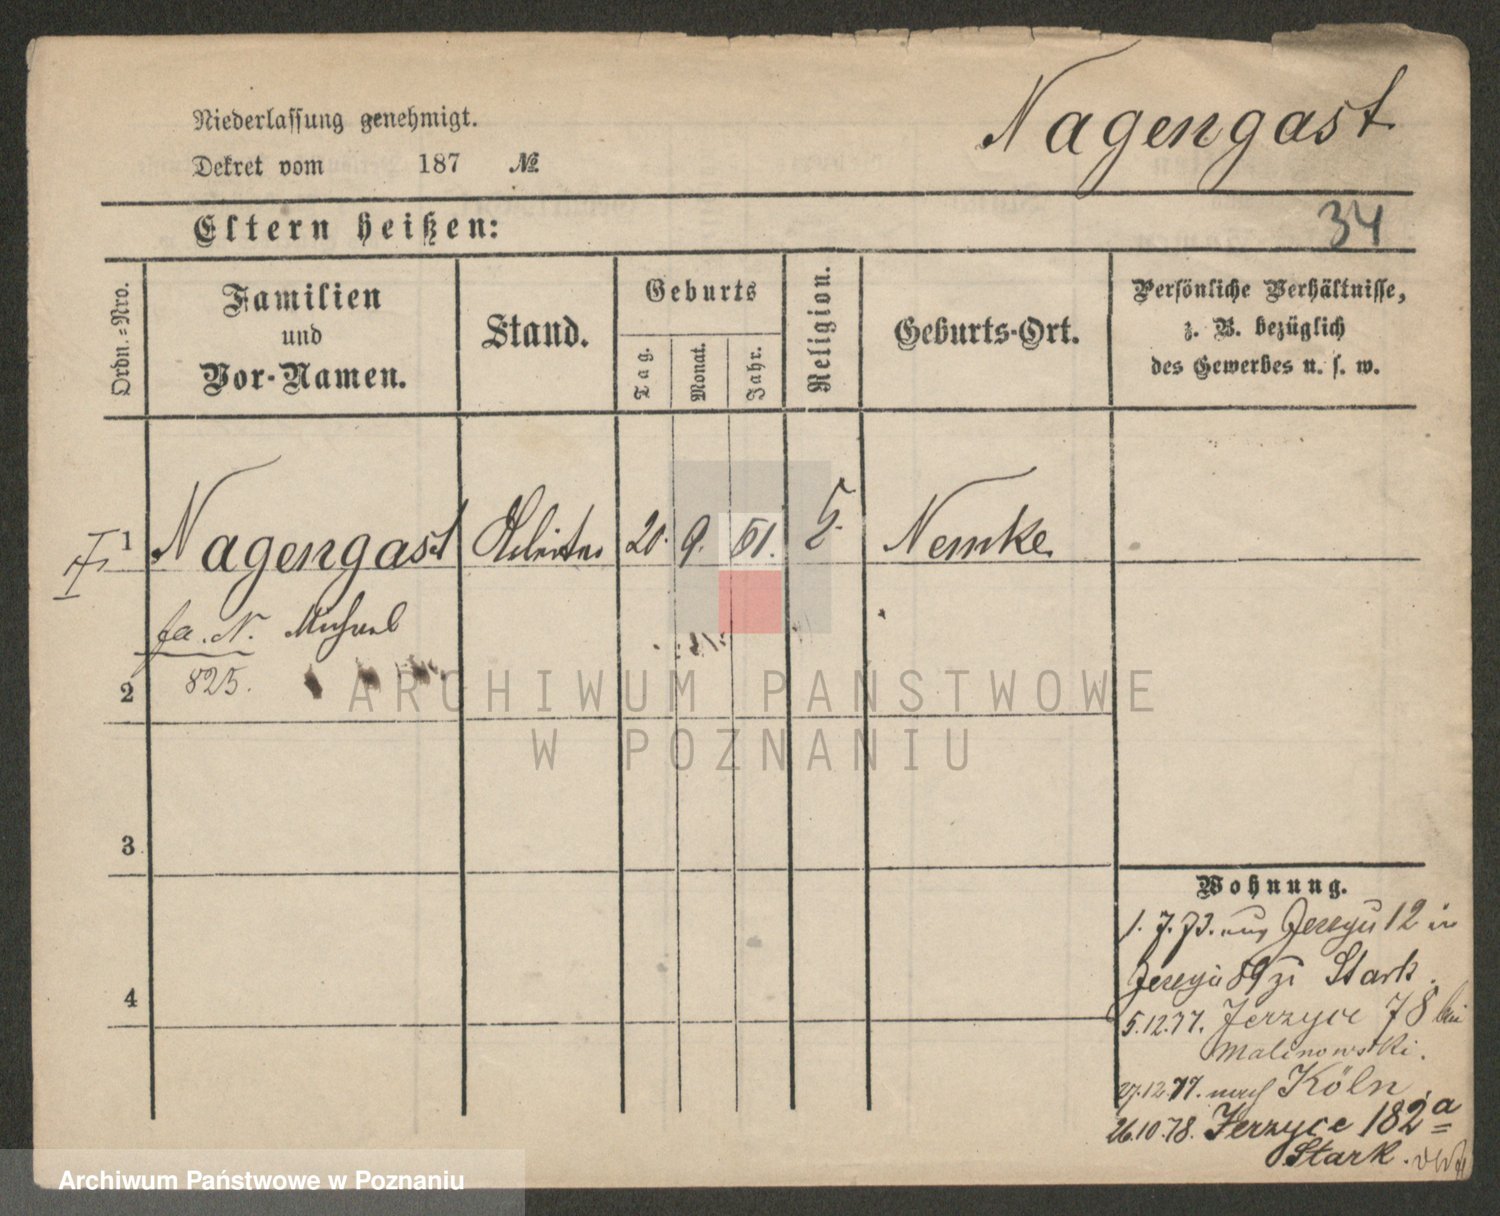 Nagengast
Niederlassung genehmigt.
Dekret vom 187 №
34
Eltern heißen:
Ordn.-Nro.
Familien
und
Vor-Namen.
Stand.
Geburts
Tag.
Monat.
Jahr.
Religion.
Geburts-Ort.
Persönliche Verhältnisse,
z. B. bezüglich
des Gewerbes u. s. w.
1 Nagengast 20. 9. 51. Nemke
fa. N. Michael
825.
2
3
4
Wohnung.
1. 7. 73. aus 12 in
89 Stark.
5.12.77. Jerzyce 78 bei
Malinowski.
27.12.77. nach Köln
26.10.78. Jerzyce 182a
Stark.
ARCHIWUM PAŃSTWOWE
W POZNANIU
Archiwum Państwowe w Poznaniu